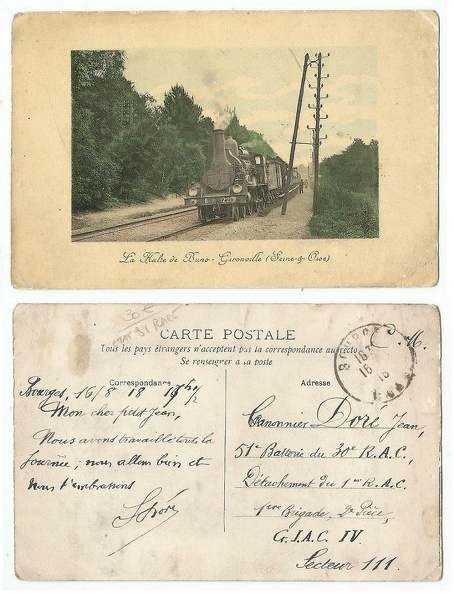 La Halte de Buno - Gironville (Seine-&-Oise)
30 €
RARE
CARTE POSTALE
Tous les pays étrangers n'acceptent pas la correspondance au recto
Se renseigner à la poste
Correspondance
Adresse
BOURGES
18
16
18
C. M.
Bourges, 16/8 18 19h1/2
Mon cher petit Jean,
Nous avons travaillé toute la
journée; nous allons bien et
nous t'embrassons
Doré
Canonnier Doré Jean
51e Batterie du 30e R.A.C,
Détachement du 1er R.A.C.
1ère Brigade, 2e Pièce,
C.I.A.C IV.
Secteur 111.